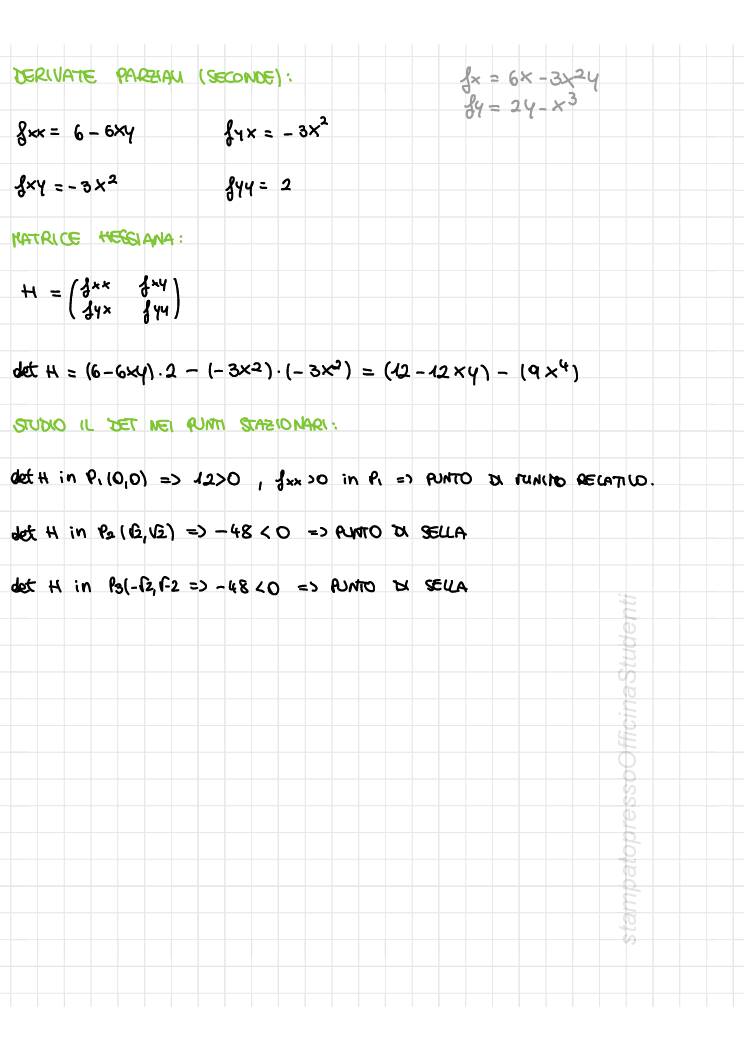 DERIVATE PARZIALI (SECONDE):
fx = 6x - 3x²y
fy = 2y - x³
fxx = 6 - 6xy fyx = - 3x²
fxy = - 3x² fyy = 2
MATRICE HESSIANA:
H = (fxx fxy
fyx fyy)
det H = (6-6xy)·2 - (-3x²)·(-3x²) = (12-12xy) - (9x⁴)
STUDIO IL DET NEI PUNTI STAZIONARI:
det H in P₁(0,0) => 12>0 , fxx>0 in P₁ => PUNTO DI MINIMO RELATIVO.
det H in P₂(√2,√2) => -48 < 0 => PUNTO DI SELLA
det H in P₃(-√2,√-2 => -48 < 0 => PUNTO DI SELLA
stampatopressoOfficinaStudenti